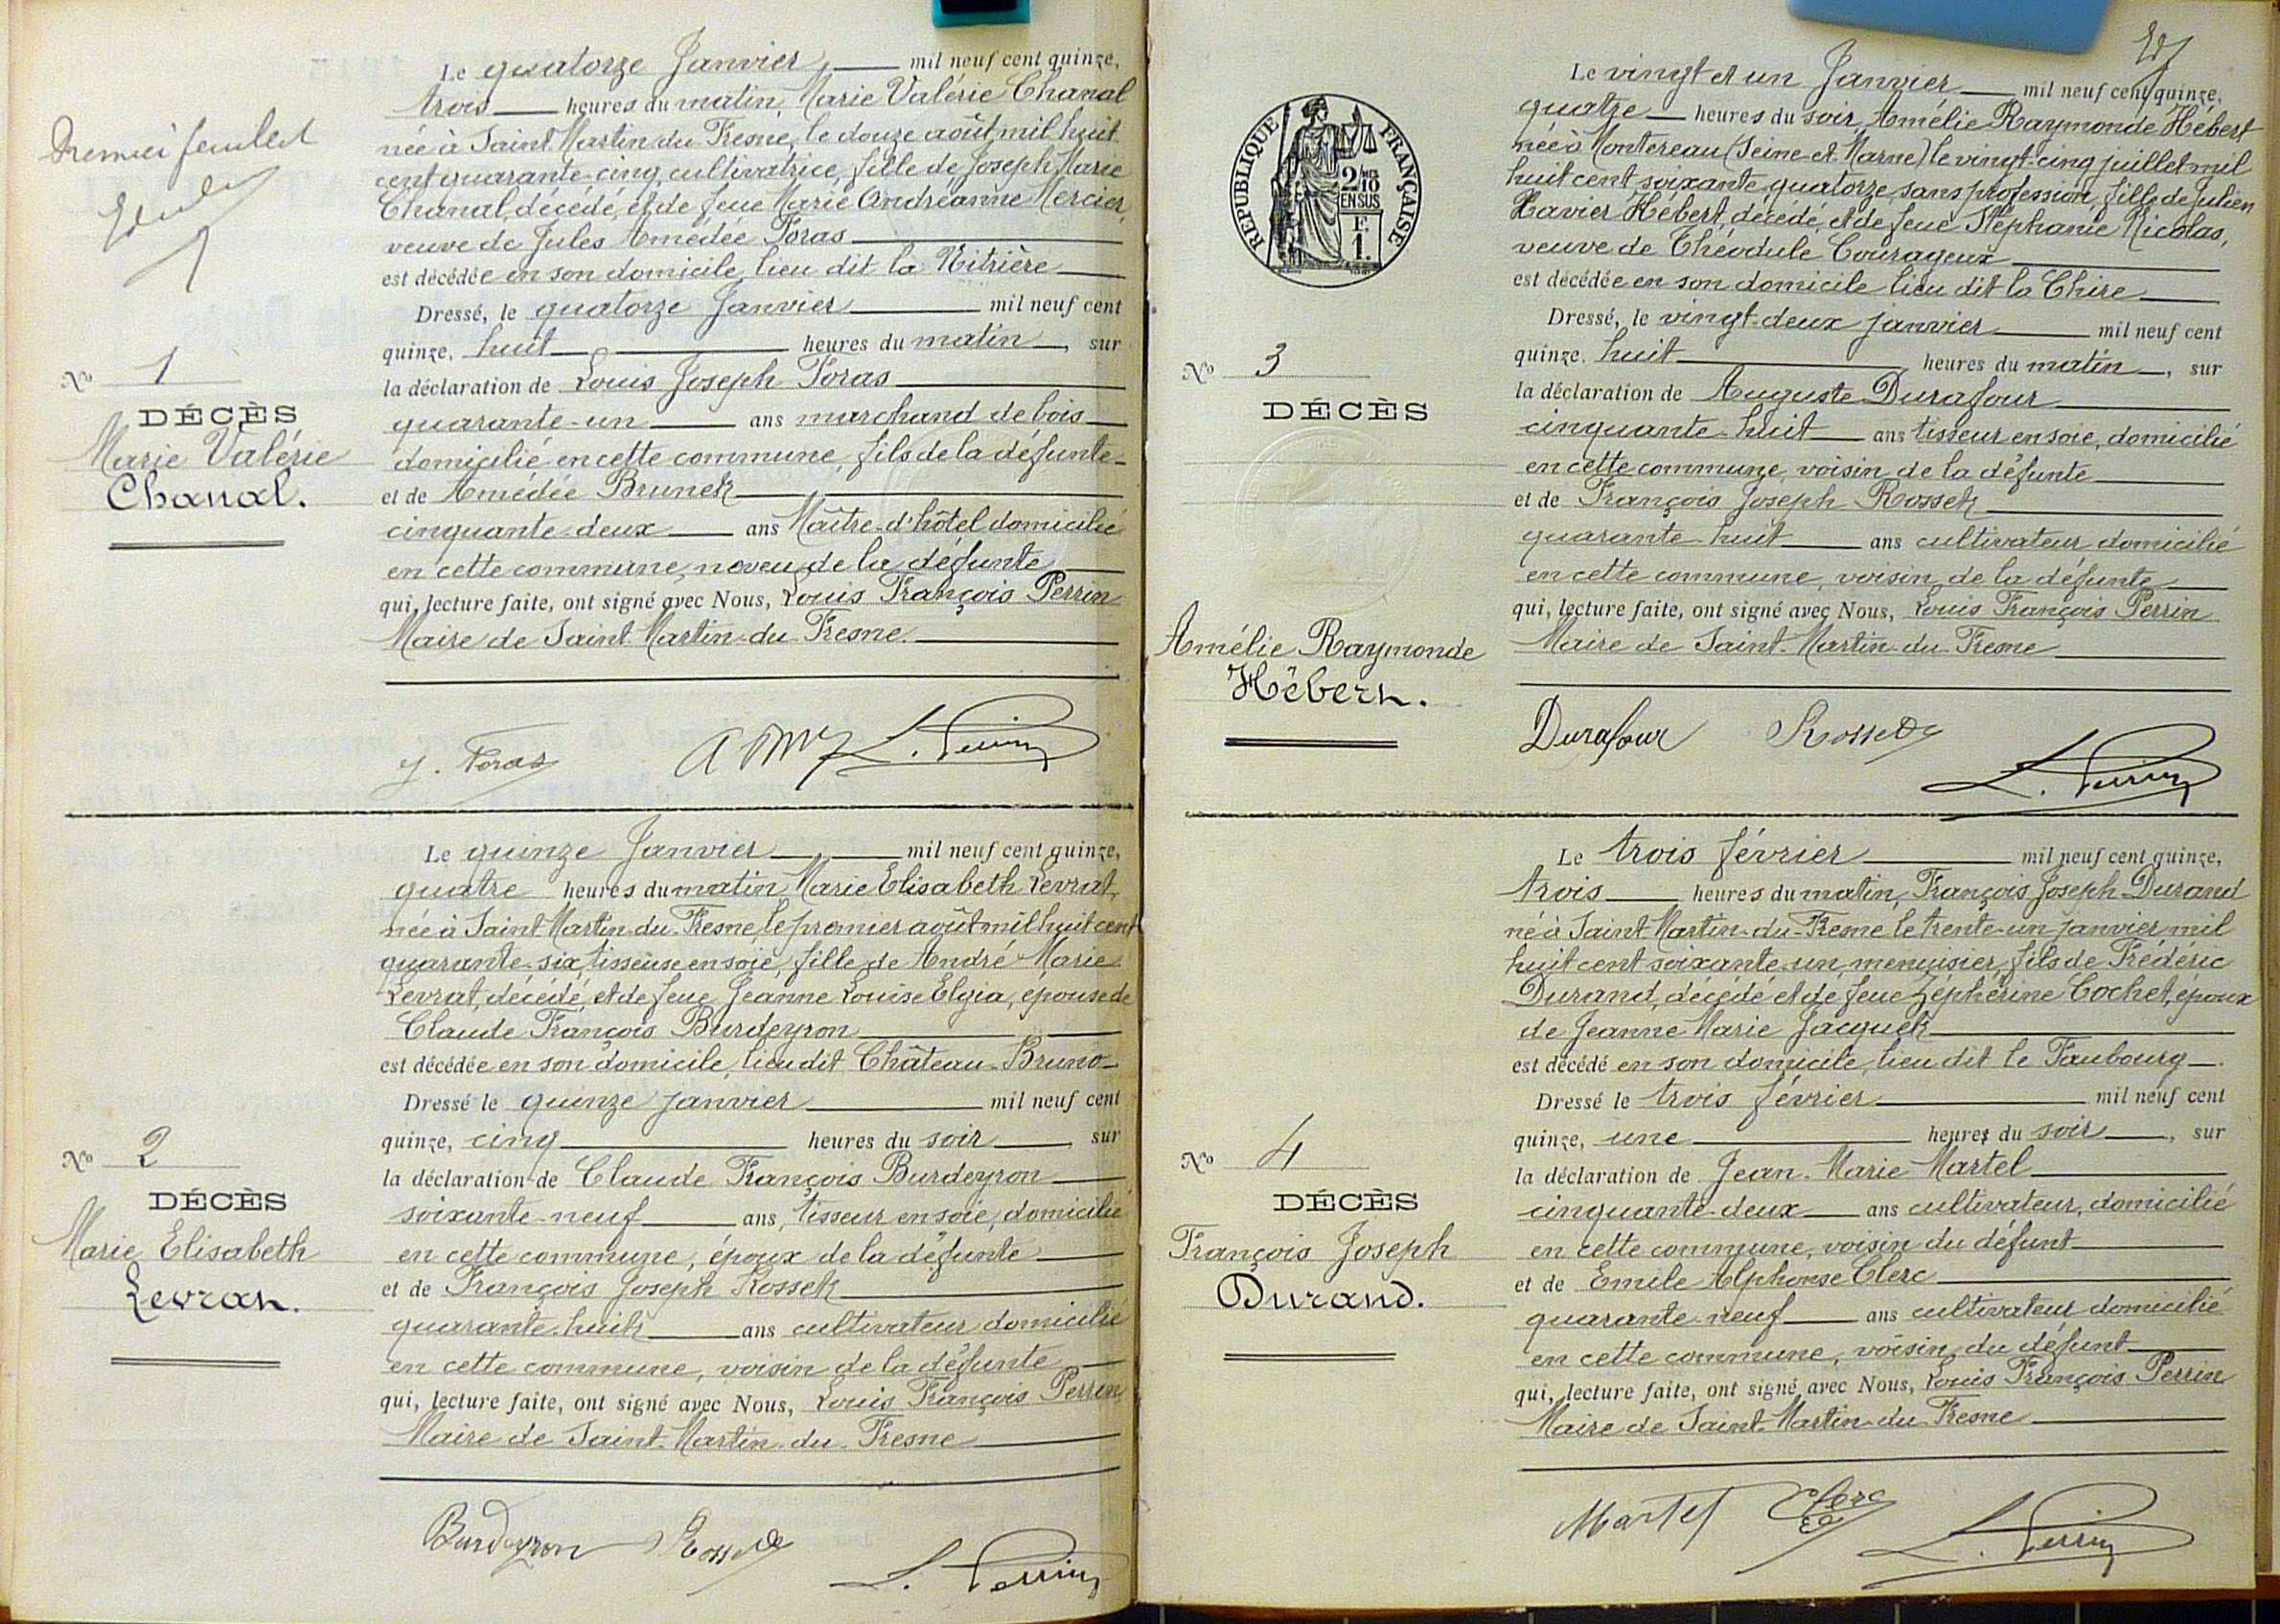 Premier feuillet
Le quatorze Janvier mil neuf cent quinze,
trois heures du matin, Marie Valérie Chanal
née à Saint Martin du Fresne, le douze août mil huit
cent quarante-cinq, cultivatrice, fille de Joseph Marie
Chanal, décédé, et de feue Marie Andréanne Mercier,
veuve de Jules Amédée Foras
est décédée en son domicile, lieu dit la Nitrière
Dressé, le quatorze Janvier mil neuf cent
quinze, huit heures du matin, sur
la déclaration de Louis Joseph Foras
quarante-un ans marchand de bois
domicilié en cette commune, fils de la défunte
et de Amédée Brunet
cinquante-deux ans Maître-d'hôtel domicilié
en cette commune, neveu de la défunte
qui, lecture faite, ont signé avec Nous, Louis François Perrin
Maire de Saint-Martin-du-Fresne.
No 1
DÉCÈS
Marie Valérie
Chanal.
J. Foras L. Perrin
Le quinze Janvier mil neuf cent quinze,
quatre heures du matin, Marie Elisabeth Levrat,
née à Saint Martin-du-Fresne, le premier août mil huit cent
quarante-six, tisseuse en soie, fille de André Marie
Levrat, décédé, et de feue Jeanne Louise Elgia, épouse de
Claude François Burdeyron
est décédée en son domicile, lieu dit Château-Bruno
Dressé le quinze janvier mil neuf cent
quinze, cinq heures du soir, sur
la déclaration de Claude François Burdeyron
soixante-neuf ans, tisseur en soie, domicilié
en cette commune, époux de la défunte
et de François Joseph Rosset
quarante-huit ans cultivateur domicilié
en cette commune, voisin de la défunte
qui, lecture faite, ont signé avec Nous, Louis François Perrin
Maire de Saint-Martin-du-Fresne
No 2
DÉCÈS
Marie Elisabeth
Levrat.
Burdeyron Rosset
L. Perrin
RÉPUBLIQUE FRANÇAISE
2/10 EN SUS
F. 1.
Le vingt et un Janvier mil neuf cent quinze,
quatre heures du soir, Amélie Raymonde Hébert
née à Montereau (Seine-et-Marne) le vingt-cinq juillet mil
huit cent soixante-quatorze, sans profession, fille de Julien
Xavier Hébert, décédé, et de feue Stéphanie Nicolas,
veuve de Théodule Courageux
est décédée en son domicile lieu dit la Chire
Dressé, le vingt-deux janvier mil neuf cent
quinze, huit heures du matin, sur
la déclaration de Auguste Durafour
cinquante-huit ans tisseur en soie, domicilié
en cette commune, voisin de la défunte
et de François Joseph Rosset
quarante-huit ans cultivateur domicilié
en cette commune, voisin de la défunte
qui, lecture faite, ont signé avec Nous, Louis François Perrin
Maire de Saint-Martin-du-Fresne
No 3
DÉCÈS
Amélie Raymonde
Hébert.
Durafour Rosset
L. Perrin
Le trois février mil neuf cent quinze,
trois heures du matin, François Joseph Durand
né à Saint Martin-du-Fresne le trente-un janvier mil
huit cent soixante-un, menuisier, fils de Frédéric
Durand, décédé et de feue Zéphérine Cochet, époux
de Jeanne Marie Jacquet
est décédé en son domicile, lieu dit le Faubourg
Dressé le trois février mil neuf cent
quinze, une heures du soir, sur
la déclaration de Jean-Marie Martel
cinquante-deux ans cultivateur, domicilié
en cette commune, voisin du défunt
et de Emile Alphonse Clerc
quarante-neuf ans cultivateur domicilié
en cette commune, voisin du défunt
qui, lecture faite, ont signé avec Nous, Louis François Perrin
Maire de Saint-Martin-du-Fresne
No 4
DÉCÈS
François Joseph
Durand.
Martel Clerc
L. Perrin